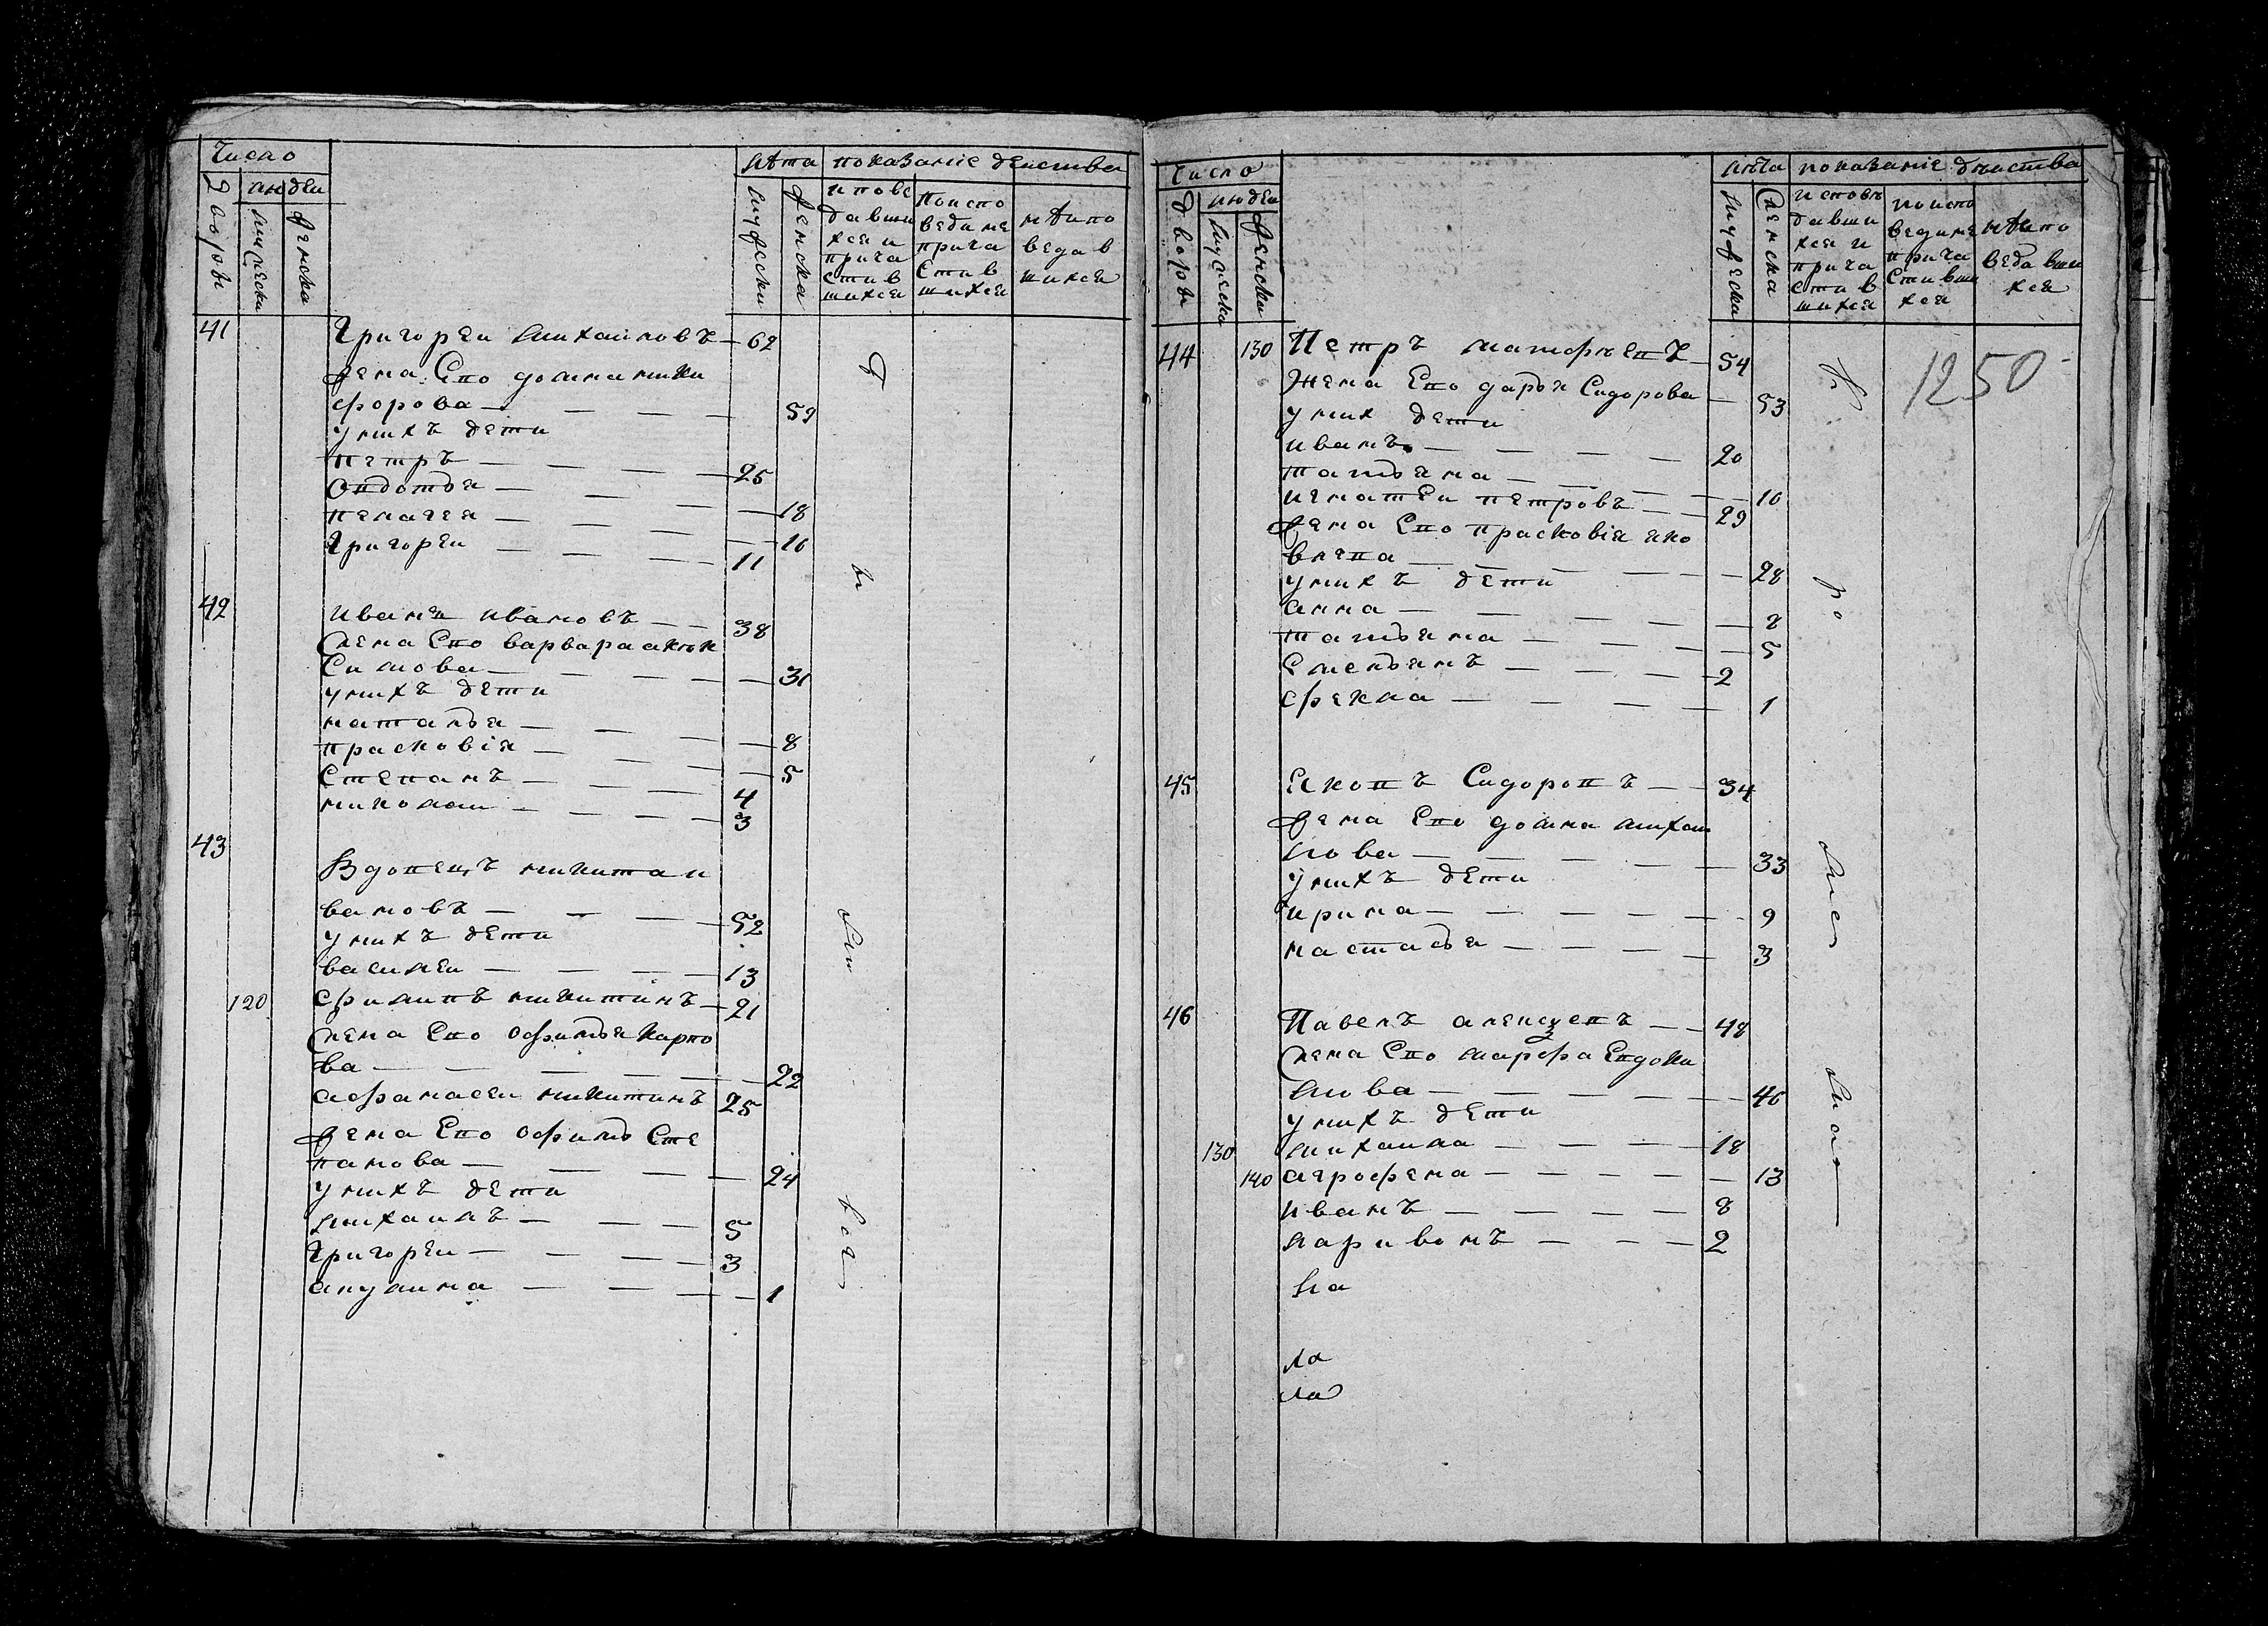 Число
лѣта показание действа
людеи
дворовъ
мужески
женска
мужески
женска
испове
давши
хся и
прича
стив
шихся
По испо
веди не
прича
стив
шихся
не испо
ведав
шихся
41 Григореи михаиловъ — 62
жена Ево домна ники
форова — — — — 59
у них дети
петръ — — — — 25
Овдотья — — — — 18
пелагея — — — — 16
Григореи — — — — 11
42 иванъ ивановъ — — 38
жена Ево варвара акси
Симова — — — — 31
у нихъ дети
наталья — — — — 8
прасковія — — — — 5
Степанъ — — — — 4
николаи — — — — 3
43
Вдовецъ никита и
вановъ — — — — 52
у нихъ дети
василеи — — — — 13
120 филипъ никитинъ — 21
жена Ево офимья карпо
ва — — — — 22
афанасеи никитинъ 25
жена Ево офимь Сте
панова — — — — 24
у нихъ дети
михаилъ — — — 5
Григореи — — — — 3
акулина — — — — 1
Число
лѣта показаніе действа
людеи
дворовъ
мужеска
женски
мужеска
женска
исповѣ
давши
хся и
прича
стив
шихся
по испо
веди не
прича
стивши
хся
не испо
ведавши
хся
1250
44 130 Петръ матфѣевъ — 54
Жена Ево дарья Сидорова — 53
у них дети
иванъ — — — — 20
татьяна — — — — 10
игнатеи петровъ — — 29
жена Ево прасковія яко
влева — — — — 28
у нихъ дети
анна — — — — 8
татьяна — — — — 5
Емельянъ — — — 2
фекла — — — — 1
45 Яковъ Сидоровъ — — 34
жена Ево домна михаи
лова — — — — 33
у нихъ дети
ирина — — — — 9
настасья — — — — 3
46 Павелъ алексеевъ — — 48
жена Ево марфа Евдоки
мова — — — — 46
у нихъ дети
130 михаила — — — — 18
140 аграфена — — — — 13
иванъ — — — — 8
ларивонъ — — — 2
ла
ла